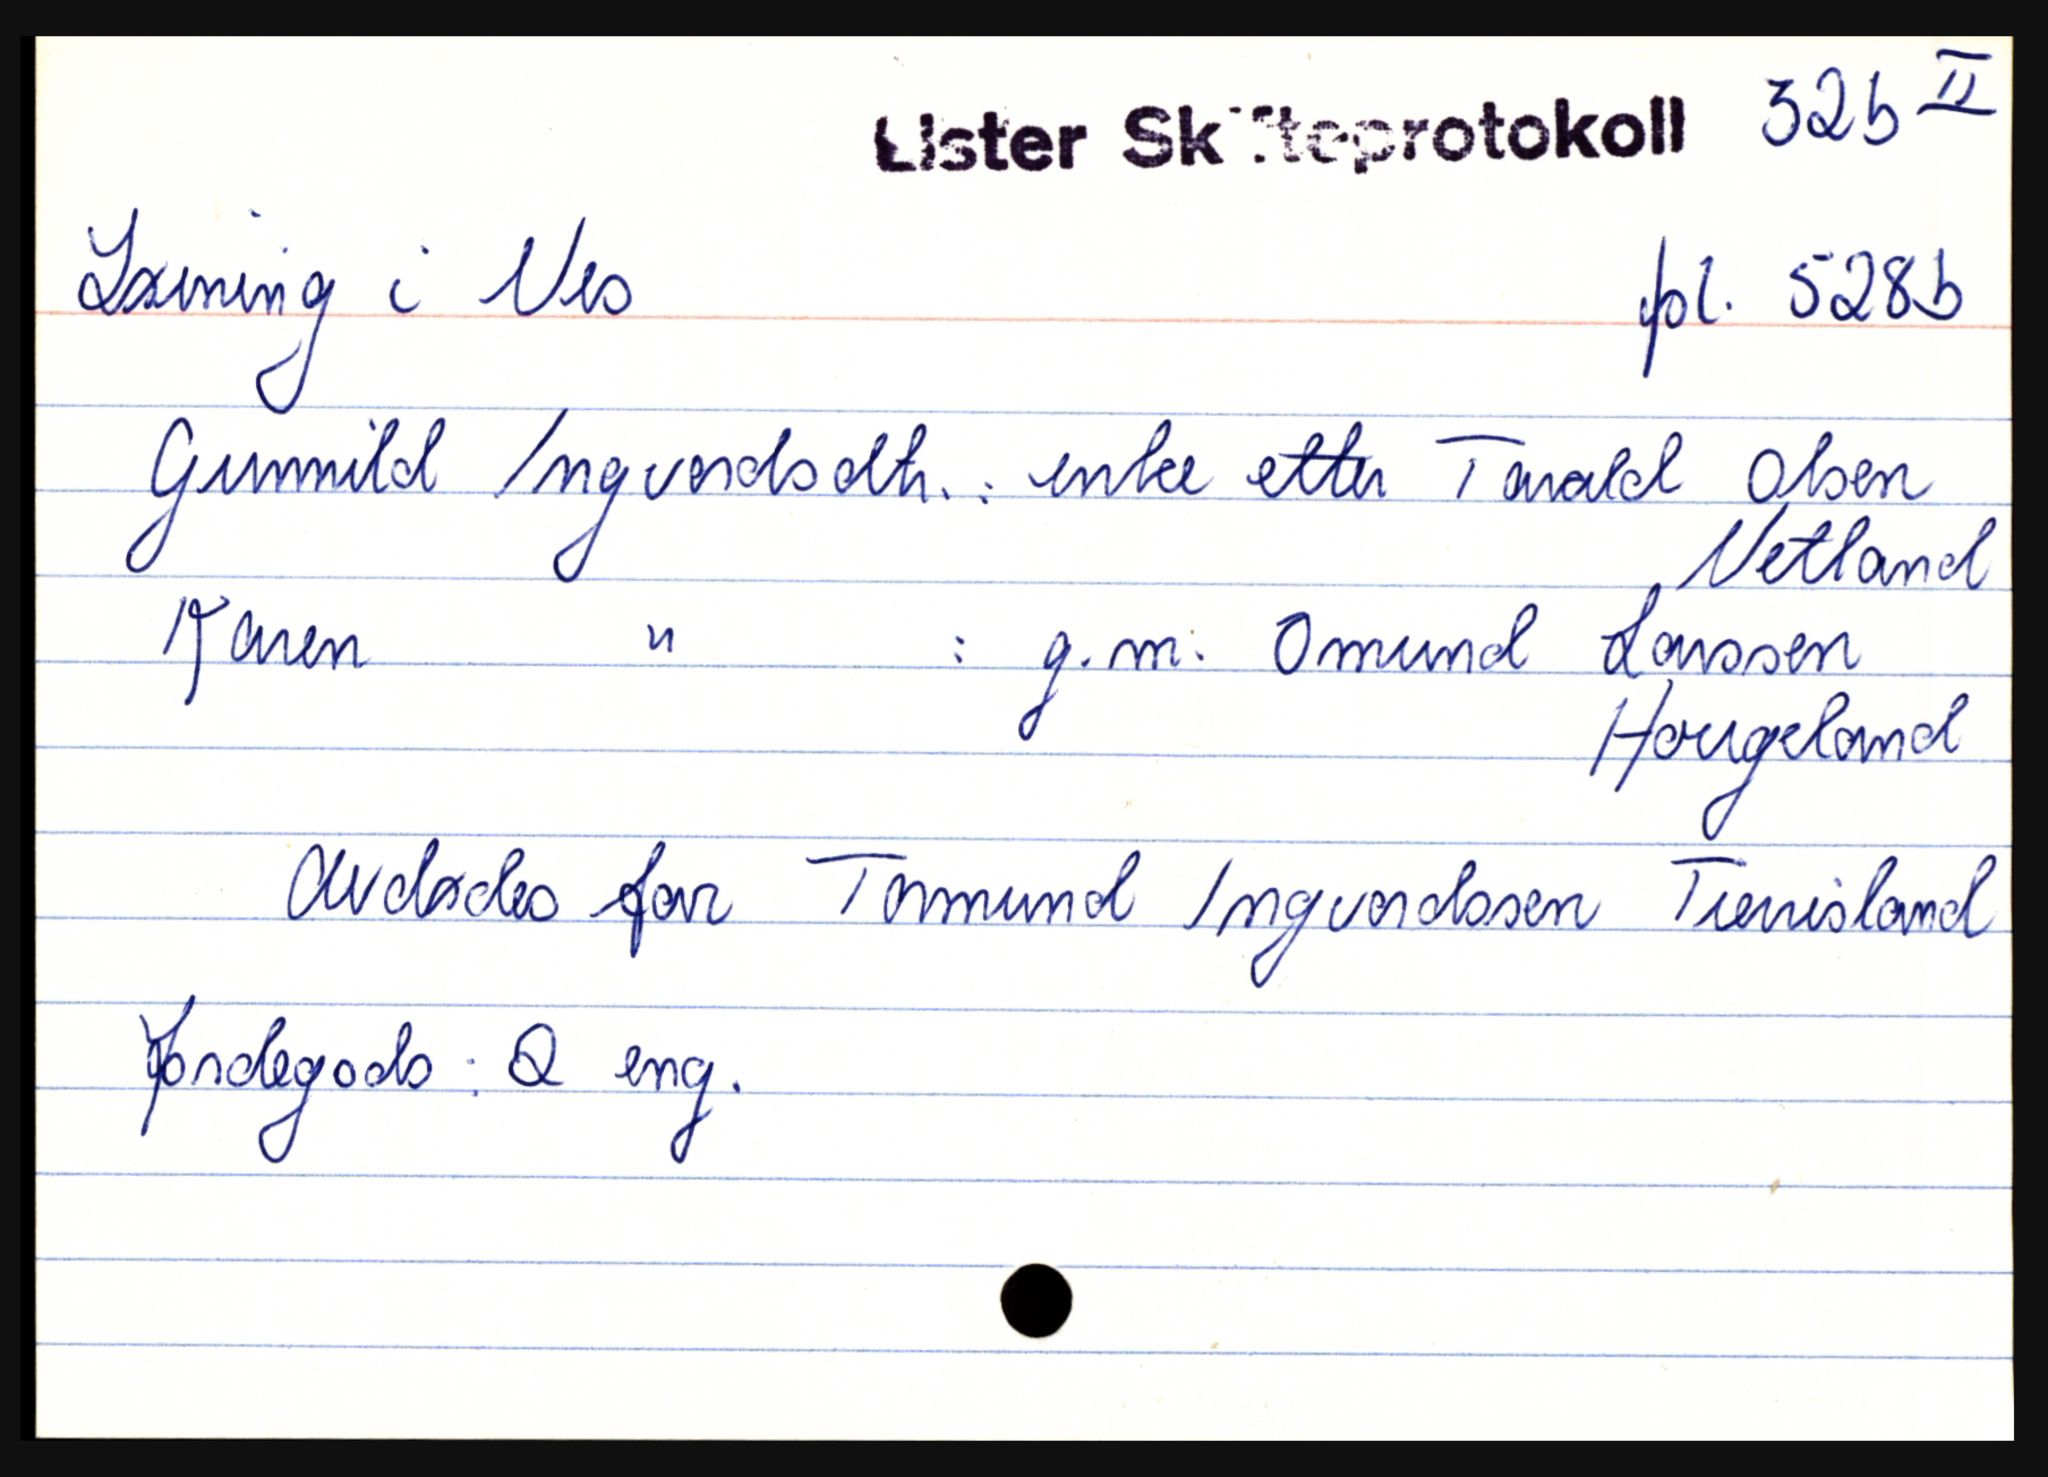 Lister Skifteprotokoll 32b II
Løining i Nes fol. 528b
Gunnild Ingvordsdtr.: enke etter Tarald Olsen
Netland
Karen " : g.m: Omund Larssen
Hougeland
Avdødes far Tormund Ingvordssen
Jordegods: 2 eng.